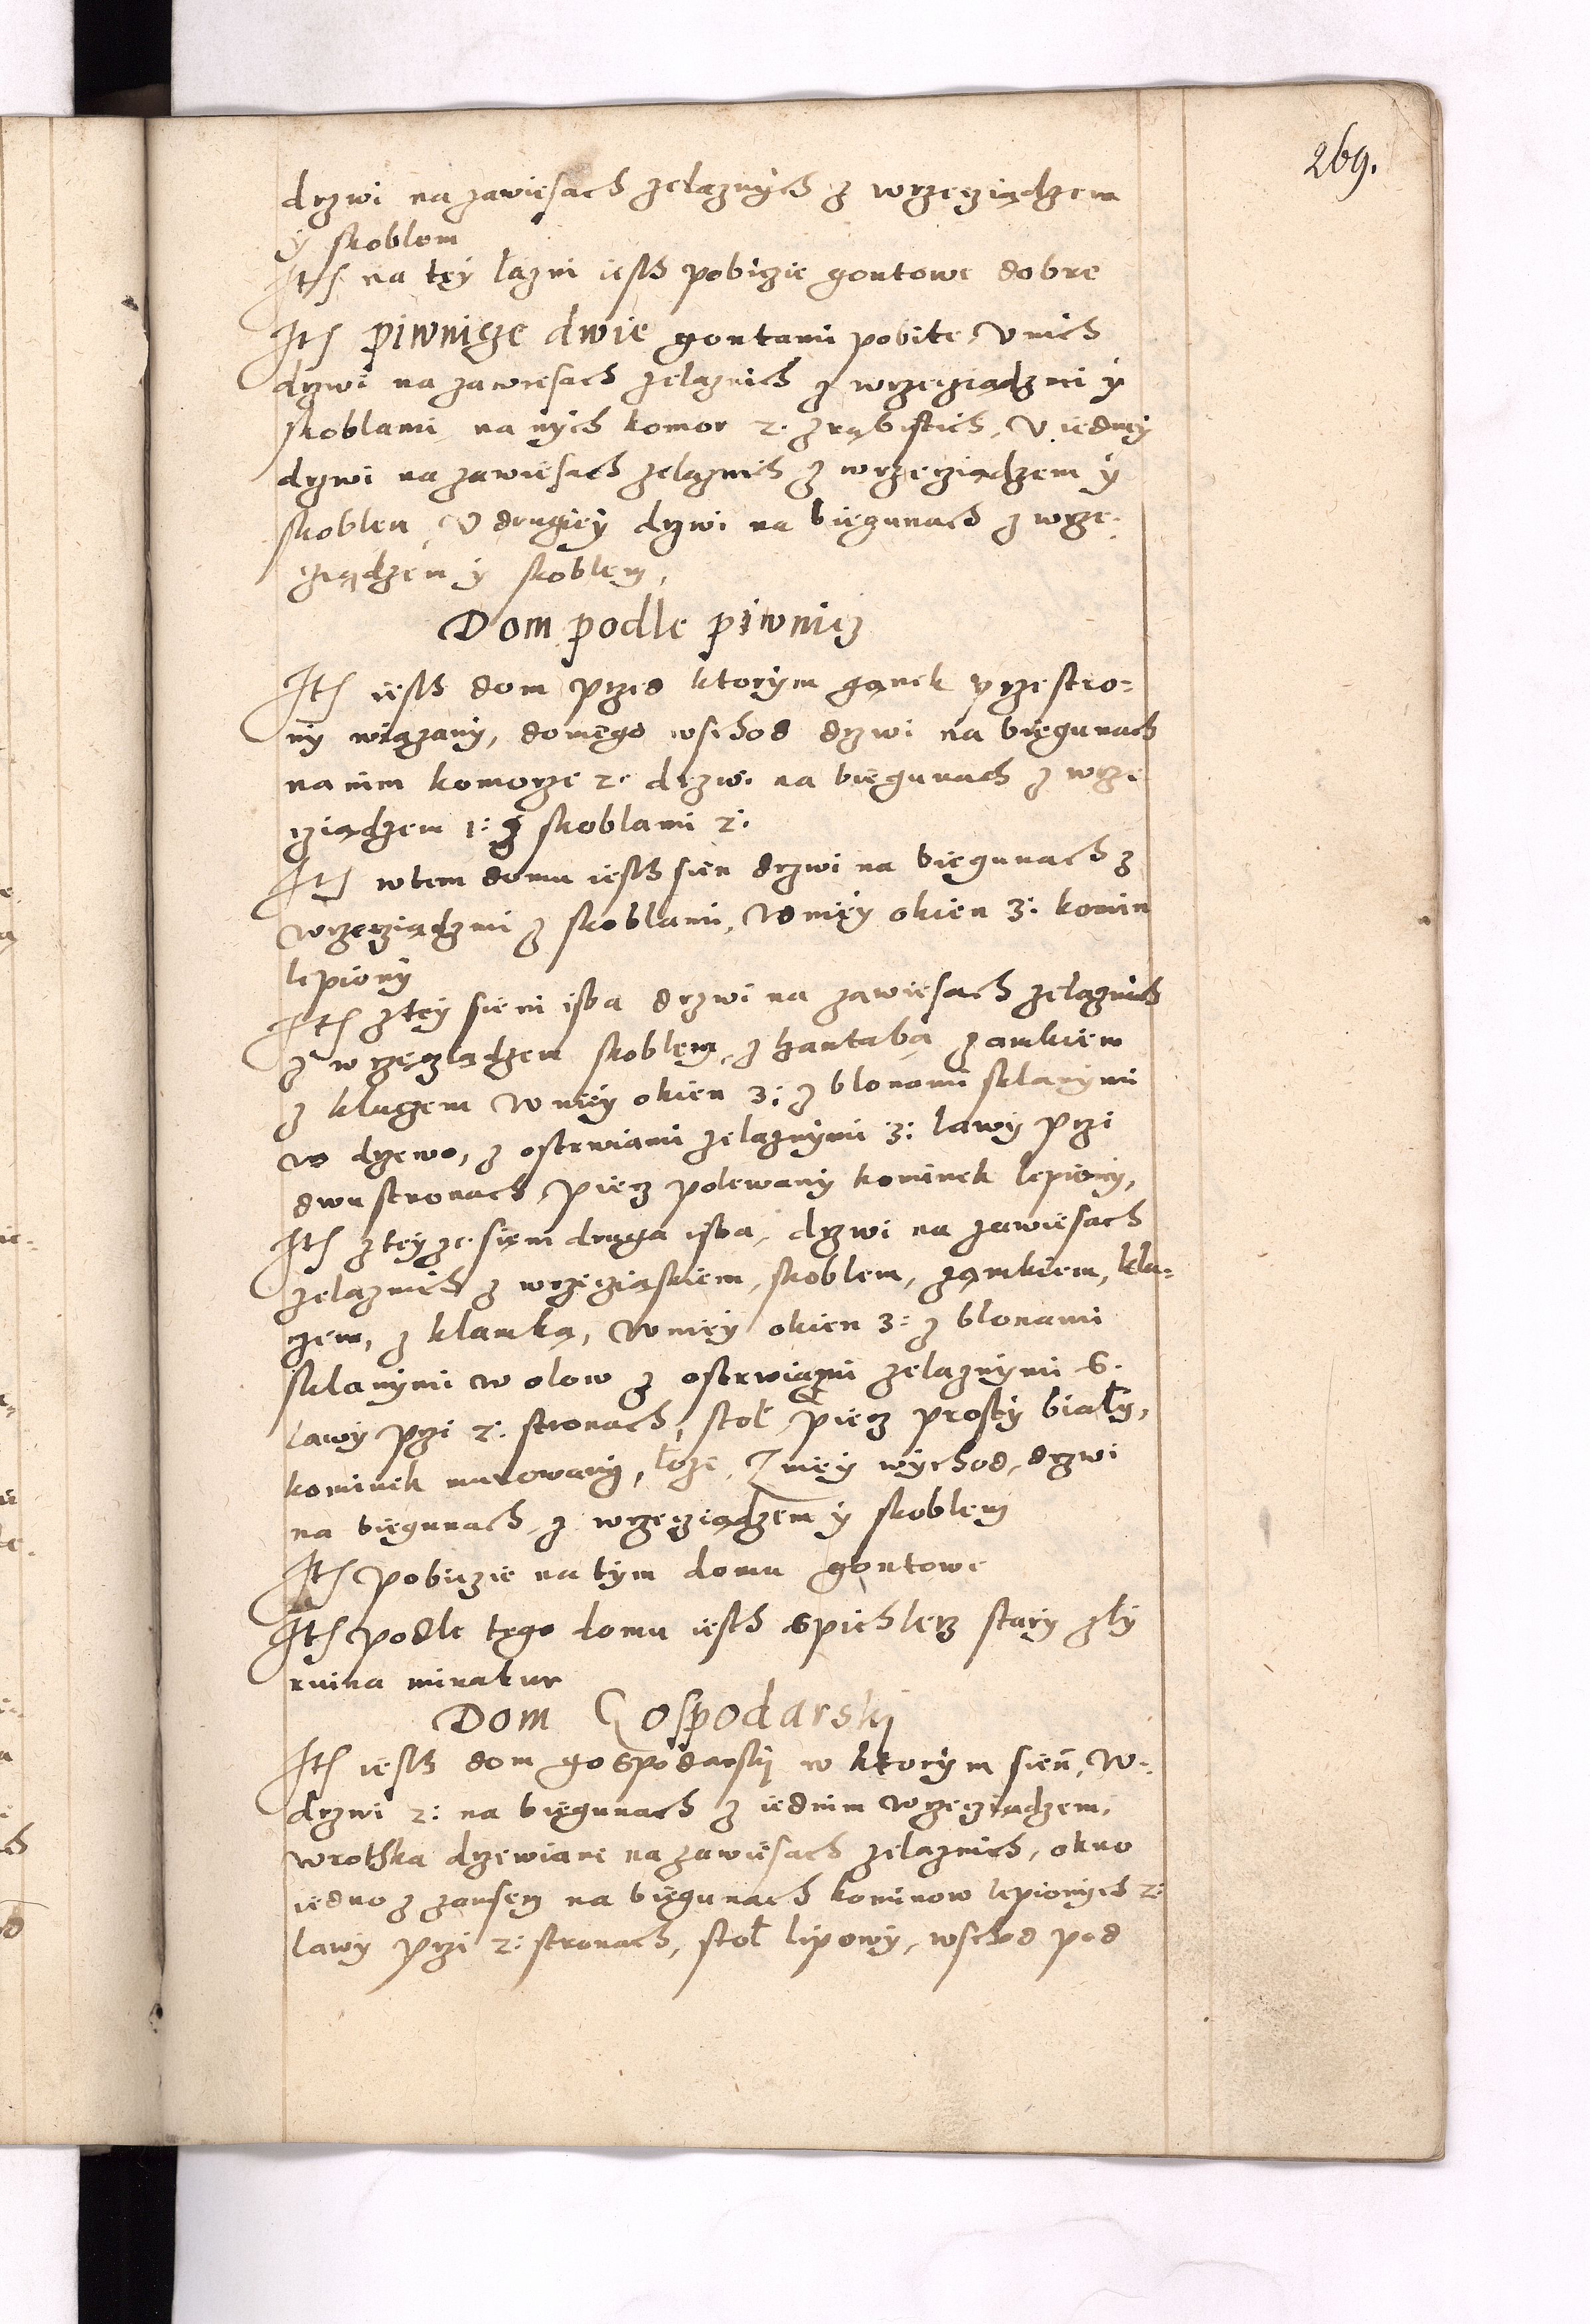 269.
drzwi na zawiesach zelaznych z wrzecziądzem
y skoblem
Its na tey łazni iesth pobiczie gontowe dobre
Its piwnicze dwie gontami pobite, V nich
drzwi na zawiesach zelaznich z wrzecziądzmi y
skoblami, na nych komor 2. zrąbistich, V iedney
drzwi na zawiesach zelaznich z wrzecziądzem y
skoblem, V drugiey drzwi na biegunach z wrze-
cziądzem y skoblem,
Dom podle piwnicz
Its iesth dom przed ktorym ganek przestro-
ny wiązany, do niego wschod drzwi na biegunach
na nim komorze 2. drzwi na biegunach z wrze
cziądzem 1: z skoblami 2:
Its w tem domu iesth sien drzwi na biegunach z
wrzecziądzmi z skoblami, W niey okien 3: komin
lepiony
Its z tey sieni isba drzwi na zawiesach zelaznich
z wrzecziądzem skoblem, z hantabą zamkiem
z kluczem W niey okien 3: z blonami sklanymi
w drzewo, z ostrwiami zelaznymi 3: lawy przi
dwu stronach, piecz polewany kominek lepiony,
Its z teyze sieni druga isba, drzwi na zawiesach
zelaznich z wrzecziąskiem, skoblem, zamkiem, klu-
czem, z klamką, W niey okien 3: z blonami
sklanymi w olow z ostrwiami zelaznymi 6.
lawy przi 2: stronach, stoł, piecz prosty biały,
kominek murowany, łoze, Z niey wychod, drzwi
na biegunach z wrzecziądzem y skoblem
Its pobiczie na tym domu gontowe
Its podle tego domu iesth spichlerz stary zły
ruina minatur
Dom Gospodarski
Its iesth dom gospodarski w ktorym sien, W-
drzwi 2: na biegunach z iednim wrzecziądzem,
wrothka drzewiane na zawiesach zelaznich, okno
iedno z zausem na biegunach kominow lepionych 2:
lawy przi 2: stronach, stoł lipowy, wschod pod